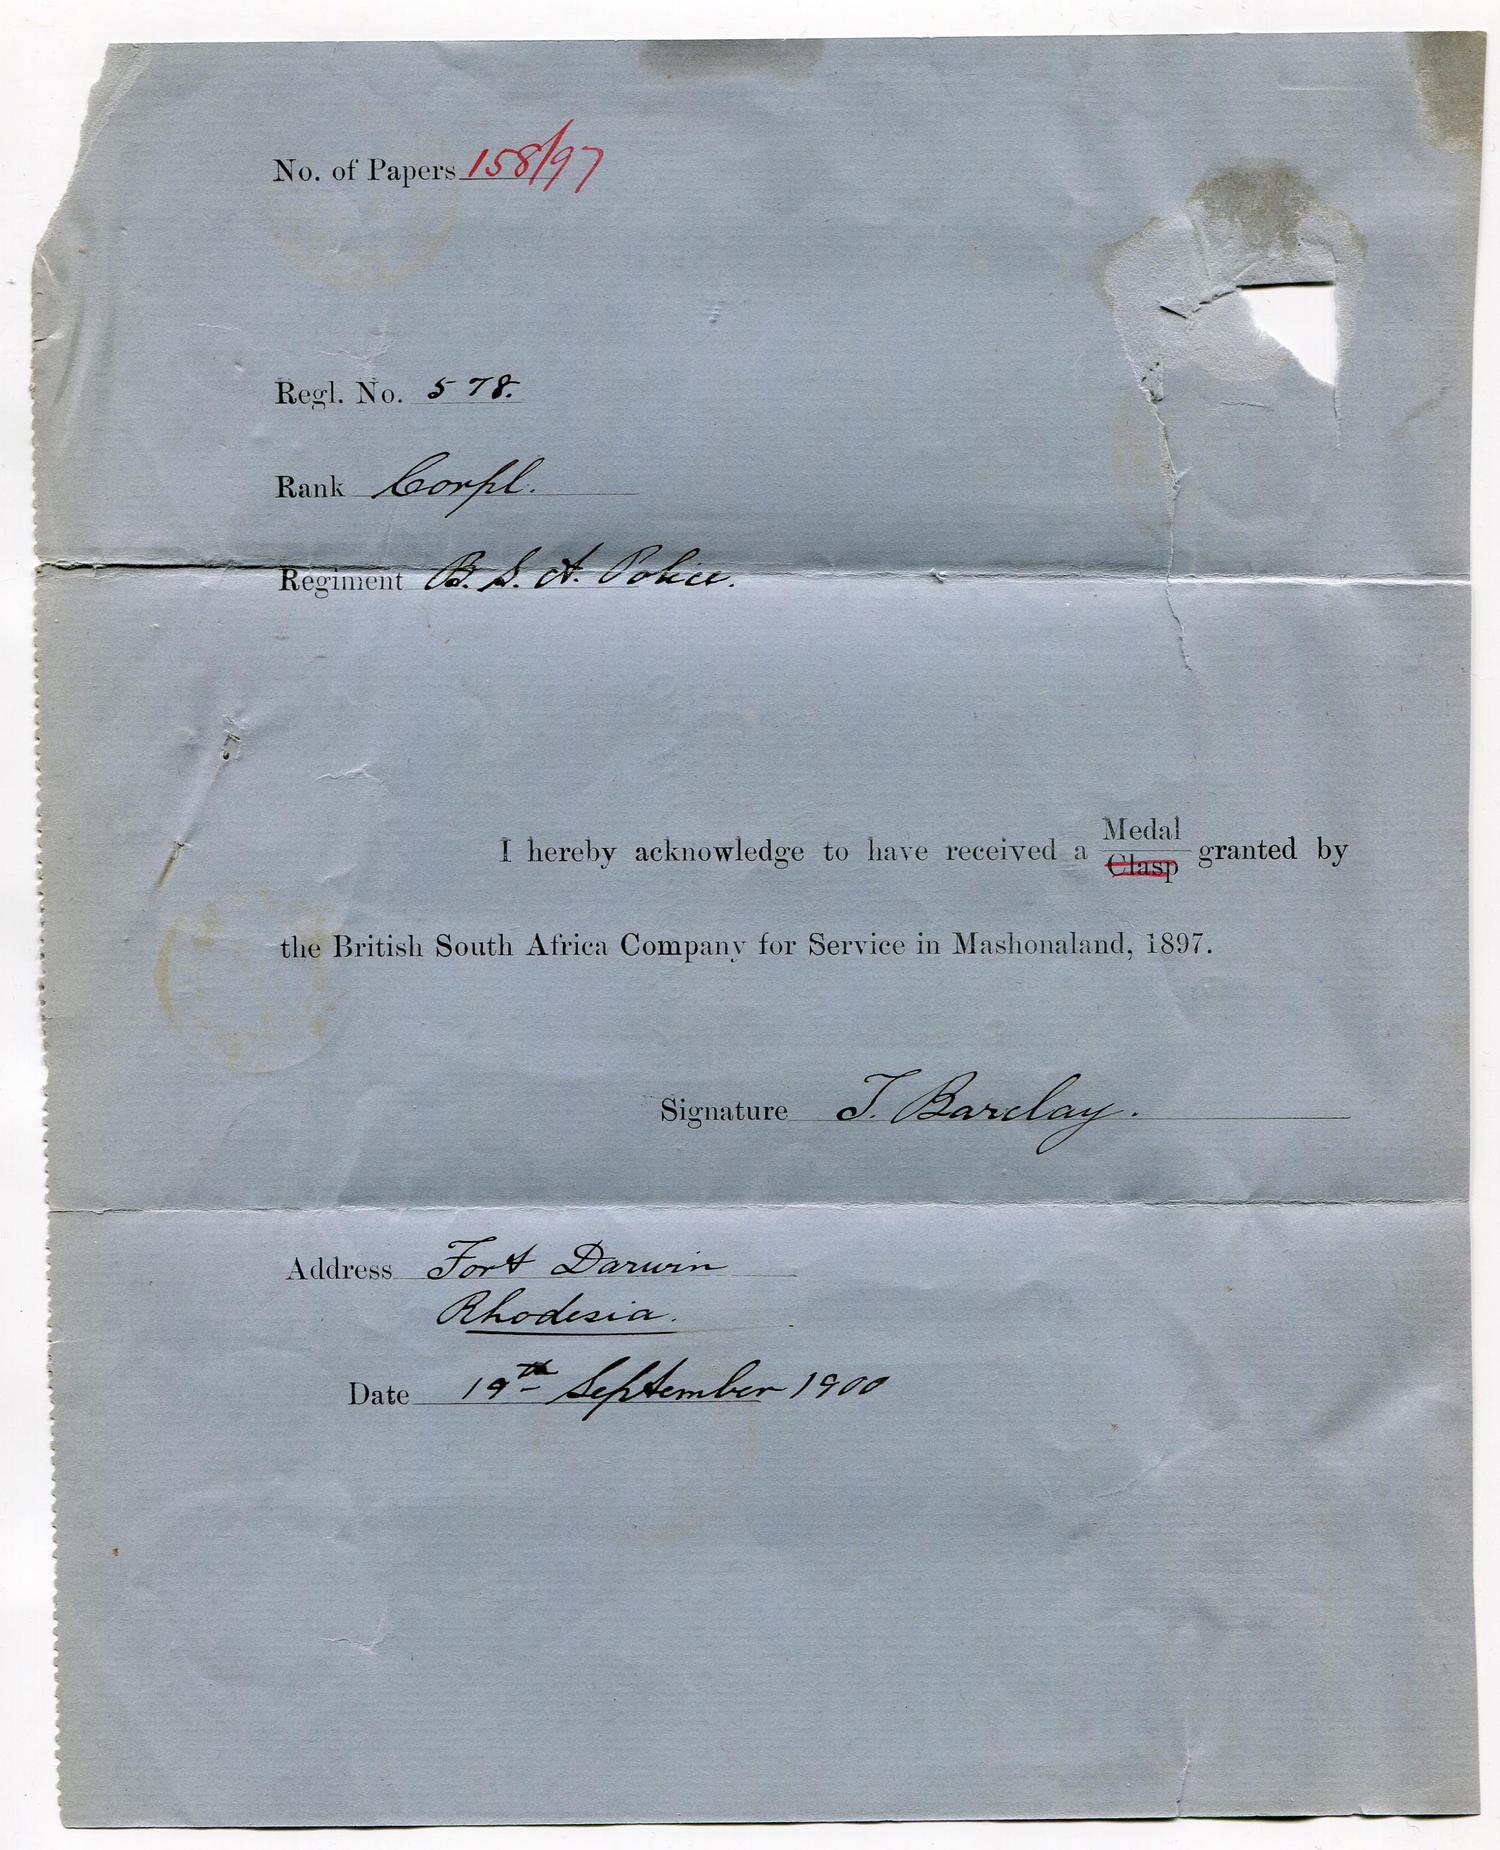 No. of Papers 158/97
Regl. No. 578.
Rank Corpl.
Regiment B. S. A. Police.
I hereby acknowledge to have received a Medal
Clasp granted by
the British South Africa Company for Service in Mashonaland, 1897.
Signature T. Barclay.
Address Fort Darwin
Rhodesia.
Date 19th September 1900